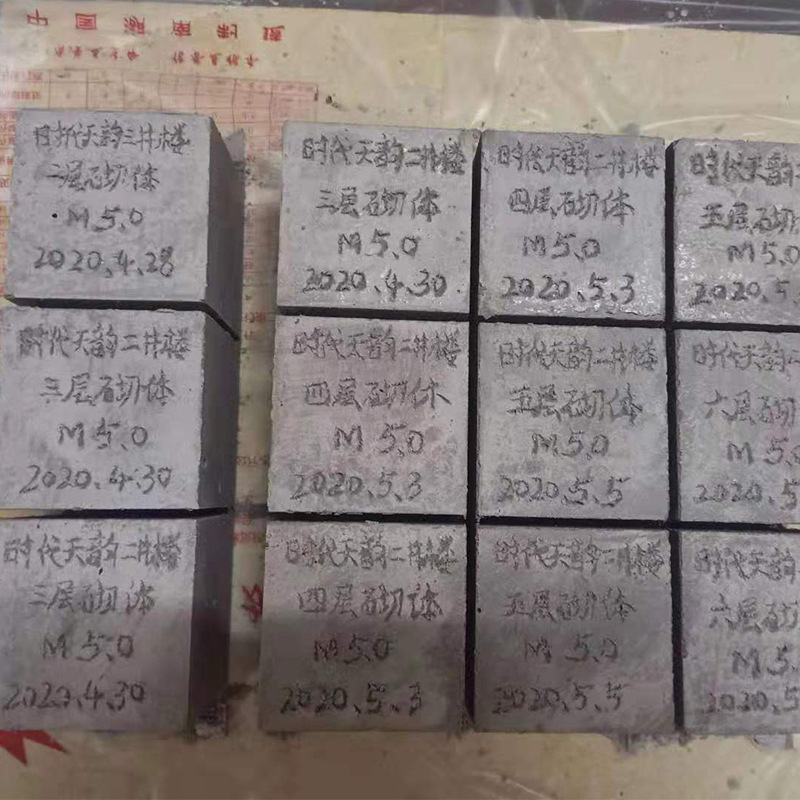 时代天韵二#楼
二层砌体
M5.0
2020.4.28
时代天韵二#楼
三层砌体
M5.0
2020.4.30
时代天韵二#楼
四层砌体
M5.0
2020.5.3
时代天韵
五层砌
M5.0
2020.5.
时代天韵二#楼
三层砌体
M5.0
2020.4.30
时代天韵二#楼
四层砌体
M5.0
2020.5.3
时代天韵二#楼
五层砌体
M5.0
2020.5.5
时代天韵
六层砌
M5.
2020.5
时代天韵二#楼
三层砌体
M5.0
2020.4.30
时代天韵二#楼
四层砌体
M5.0
2020.5.3
时代天韵二#楼
五层砌体
M5.0
2020.5.5
时代天韵
六层砌
M5.
2020.5